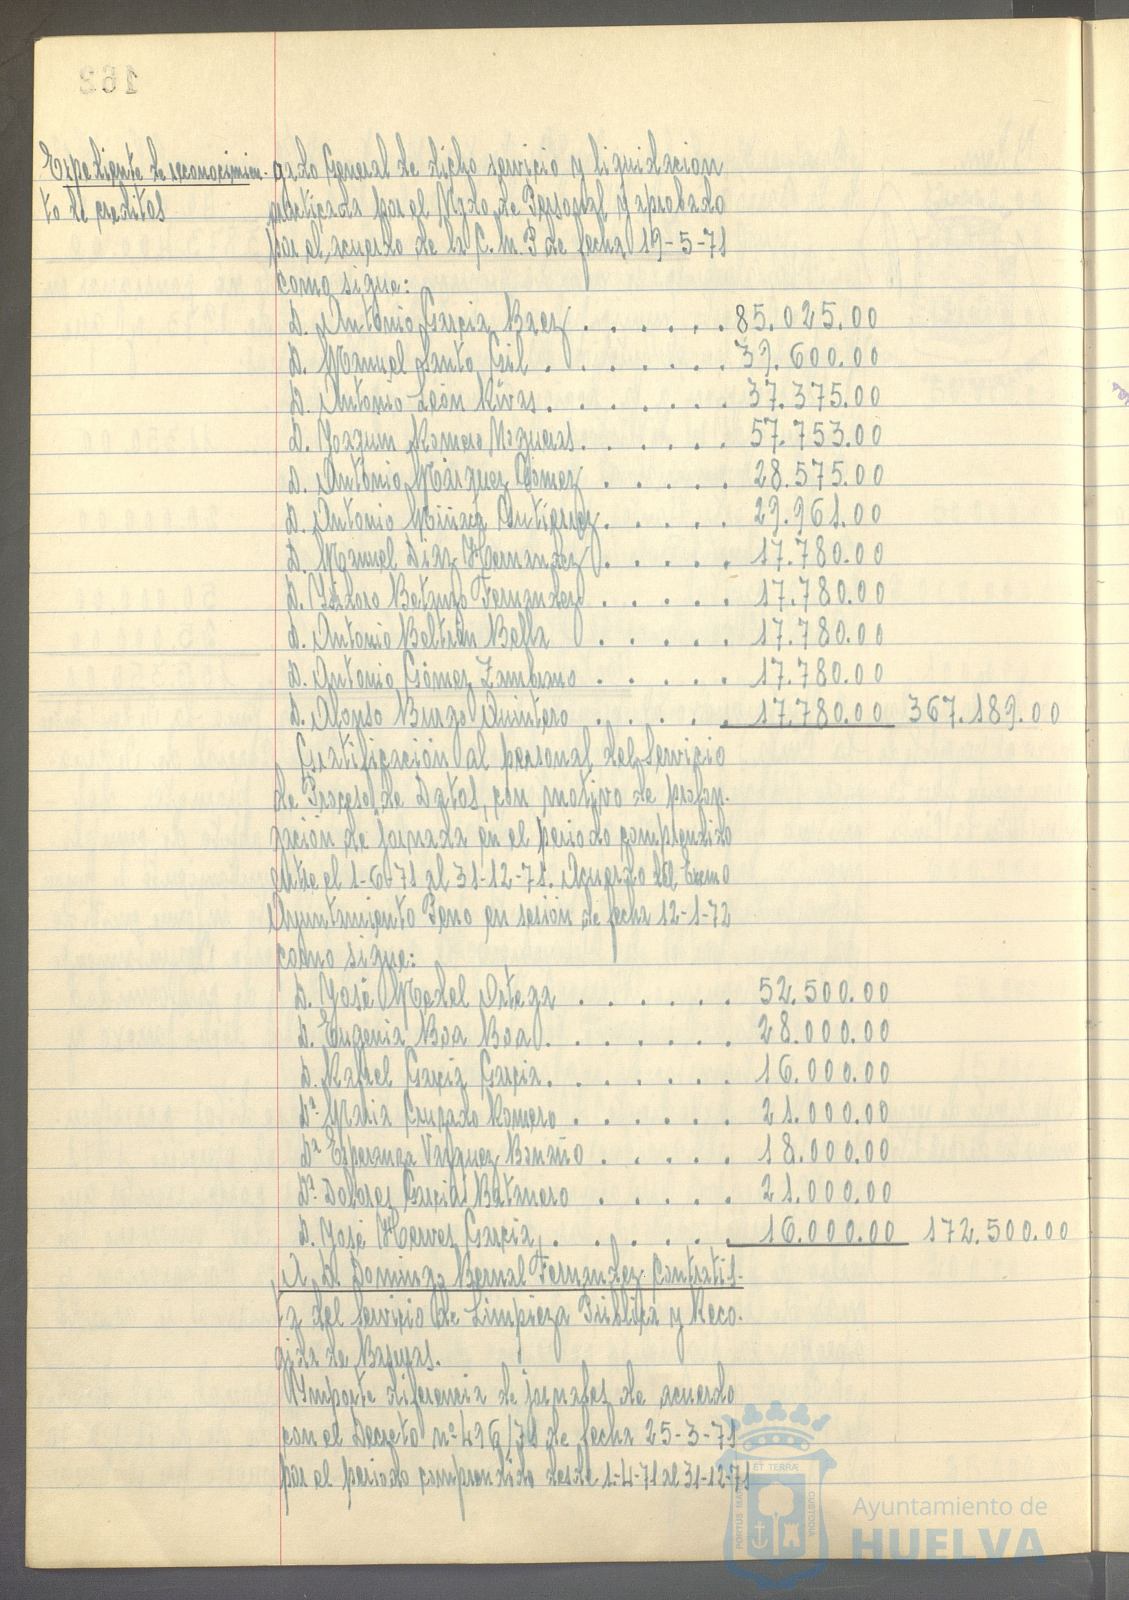 Expediente de reconocimien-
to de creditos
gado General de dicho servicio y liquidacion
practicada por el Ngdo de Personal y aprobado
por el acuerdo de la C.M.P de fecha 19-5-71
como sigue:
D. Antonio Garcia Baez . . . . . . 85.025.00
D. Manuel Santo Gil . . . . . . 39.600.00
D. Antonio León Rivas . . . . . . 37.375.00
D. Joaquin Romero Nogueras . . . . . 57.753.00
D. Antonio Márquez Gómez . . . . . 28.575.00
D. Antonio Gutierrez . . . . 29.961.00
D. Manuel Diaz Hernandez . . . . . 17.780.00
D. Isidoro Betanzo Fernandez . . . . 17.780.00
D. Antonio Beltrán Bella . . . . 17.780.00
D. Antonio Gómez Zambrano . . . . 17.780.00
D. Alonso Burgo Quintero . . . . . 17.780.00 367.189.00
Gratificación al personal del Servicio
de Proceso de Datos, con motivo de prolon-
gación de jornada en el periodo comprendido
entre el 1-6-71 al 31-12-71. Acuerdo del Exemo
Ayuntamiento Peno en sesión de fecha 12-1-72
como sigue:
D. José Medel Ortega . . . . . 52.500.00
D. Eugenia Boa Boa . . . . . . 28.000.00
D. Rafael Garcia Garcia . . . . . . 16.000.00
Dª Maria Cruzado Romero . . . . . . 21.000.00
Dª Esperanza Vazquez Bonaño . . . . . 18.000.00
Dª Dolores Garcia Batanero . . . . . 21.000.00
D. José Herves Garcia . . . . . . 16.000.00 172.500.00
A D. Domingo Bernal Fernandez Contratis-
ta del Servicio de Limpieza Publica y Reco-
gida de Basuras.
Importe diferencia de jornales de acuerdo
con el Decreto nº 496/71 de fecha 25-3-71
por el periodo comprendido desde 1-4-71 al 31-12-71
PORTUS MARIS ET TERRÆ CUSTODIA
Ayuntamiento de
HUELVA